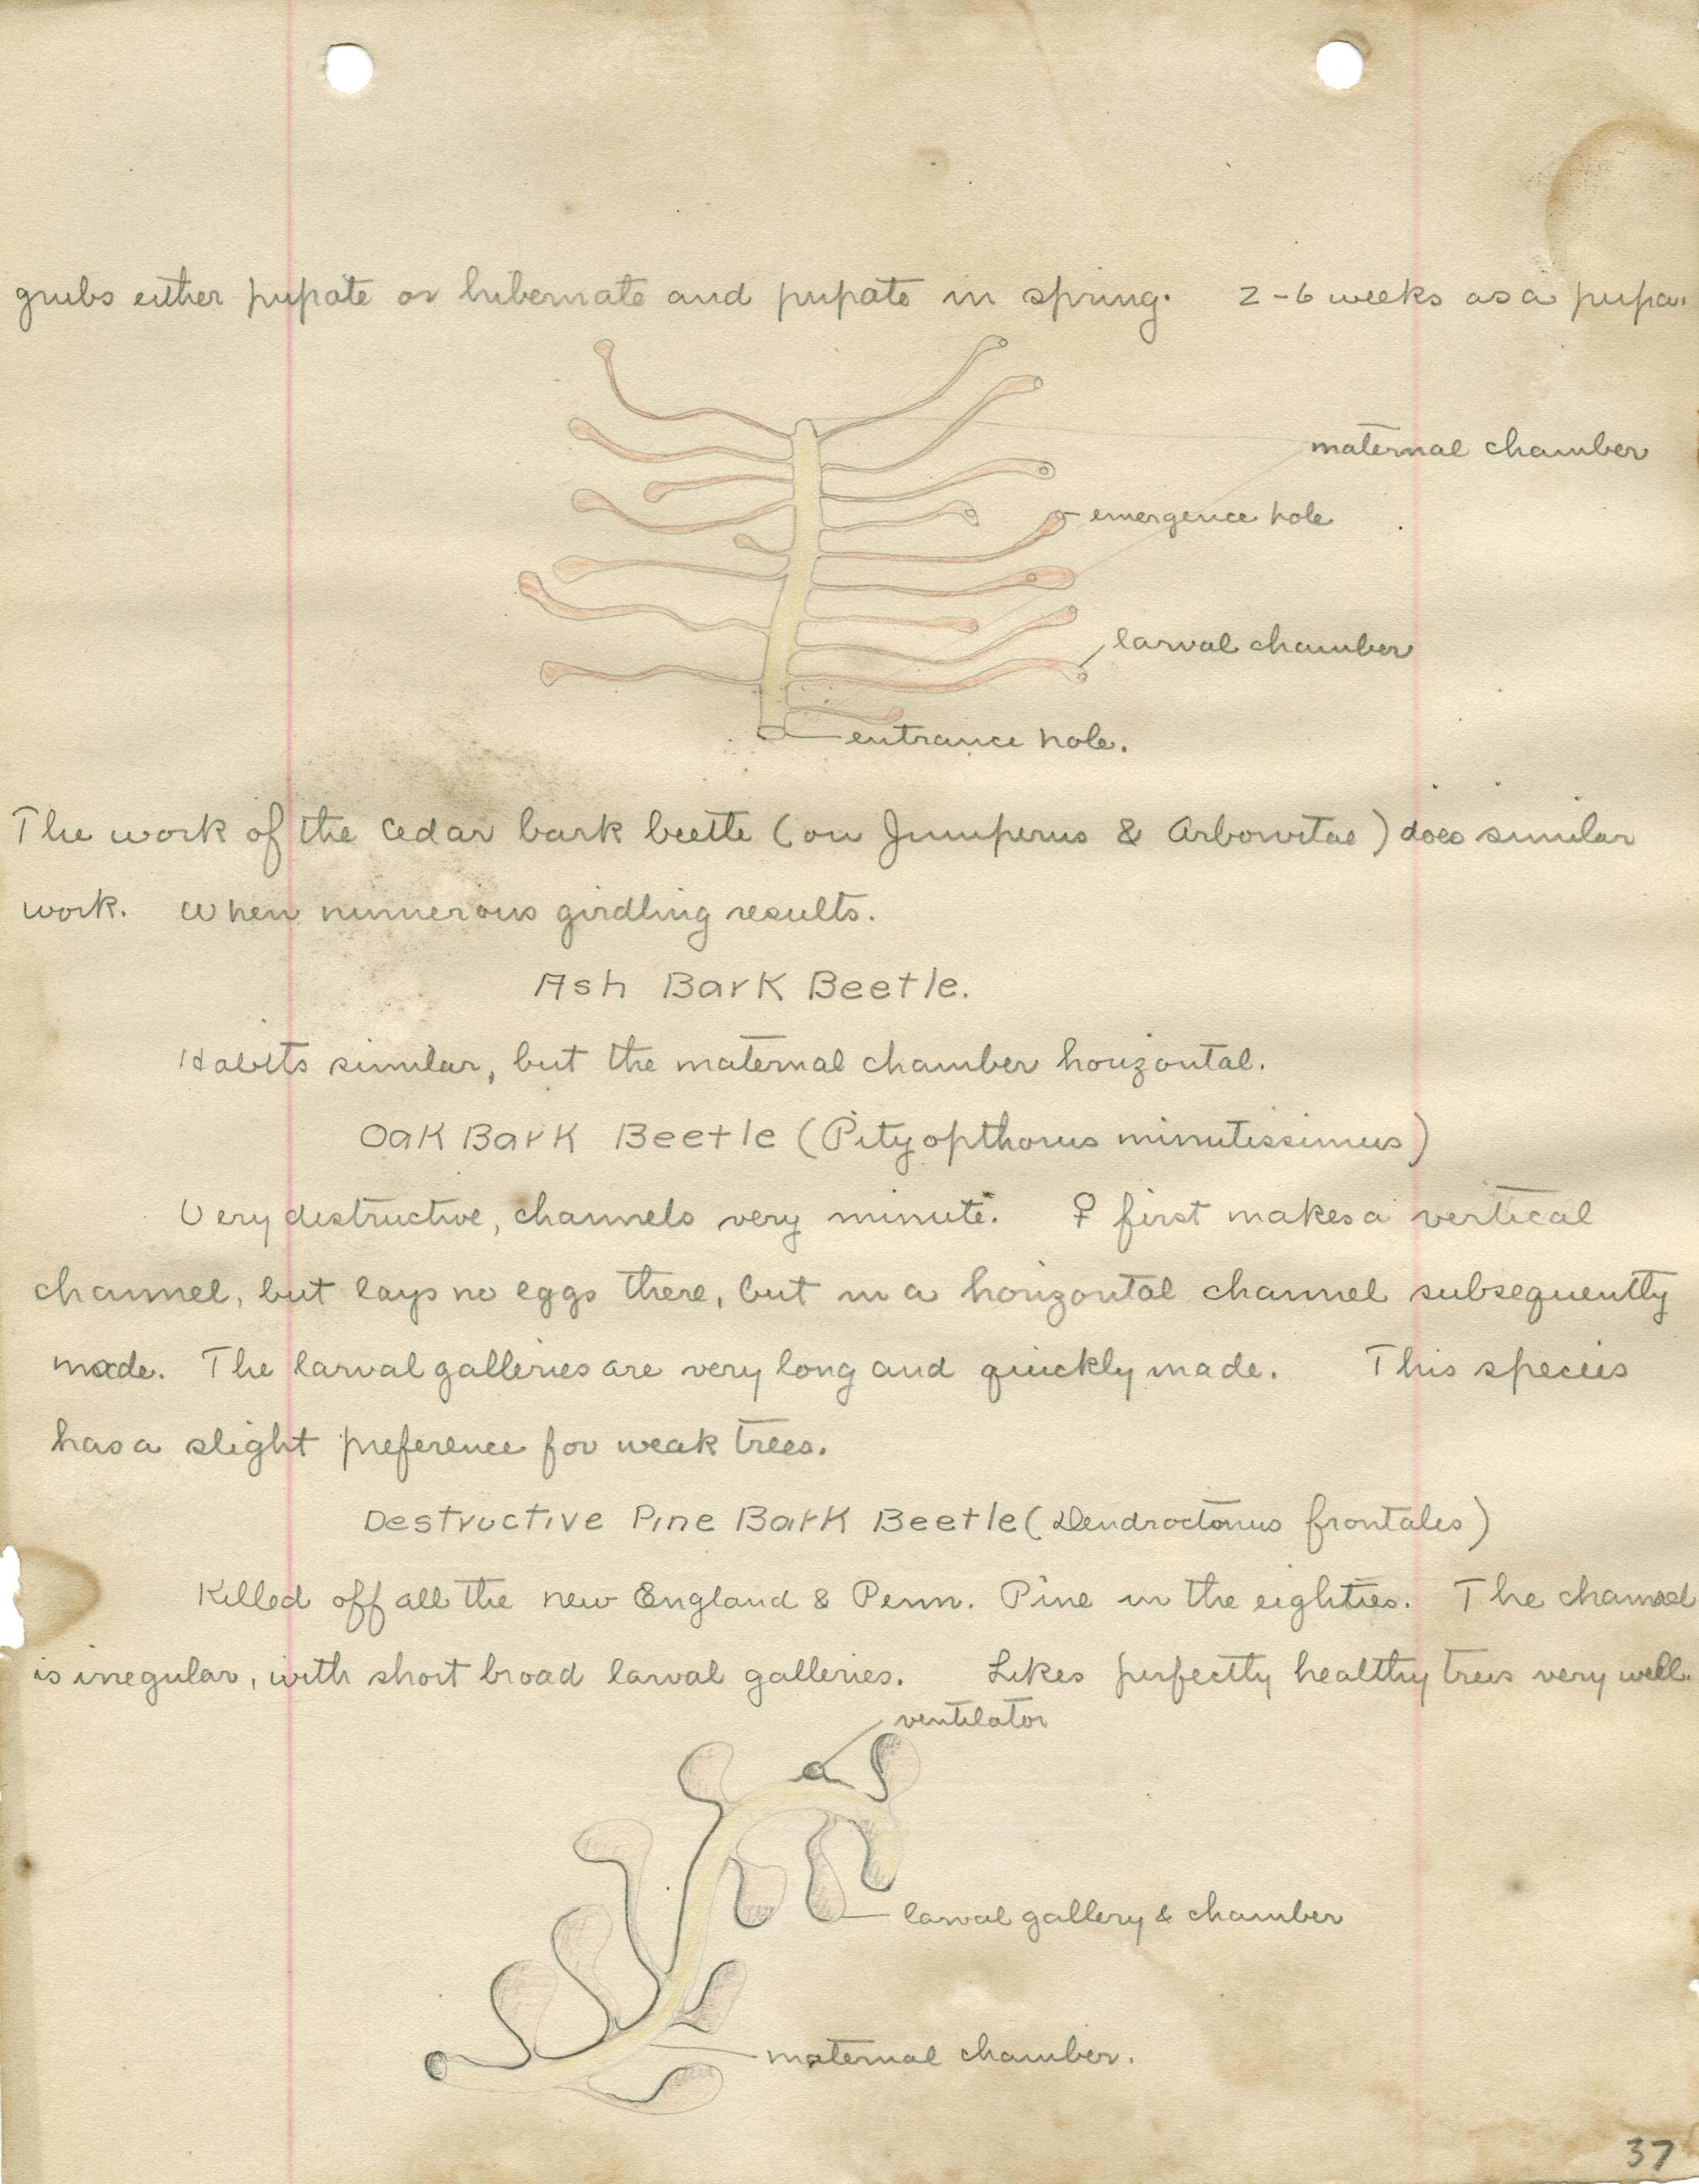 grubs either pupate or hibernate and pupate in spring. 2-6 weeks as a pupa.
maternal chamber
emergence hole
larval chamber
entrance hole.
The work of the Cedar bark beetle (on Juniperus & Arborvitae) does similar
work. When numerous girdling results.
Ash Bark Beetle.
Habits similar, but the maternal chamber horizontal.
Oak Bark Beetle (Pityopthorus minutissimus)
Very destructive, channels very minute. ♀ first makes a vertical
channel, but lays no eggs there, but in a horizontal channel subsequently
made. The larval galleries are very long and quickly made. This species
has a slight preference for weak trees.
Destructive Pine Bark Beetle (Dendroctonus frontales)
Killed off all the new England & Penn. Pine in the eighties. The channel
is irregular, with short broad larval galleries. Likes perfectly healthy trees very well.
ventilator
larval gallery & chamber
maternal chamber.
37